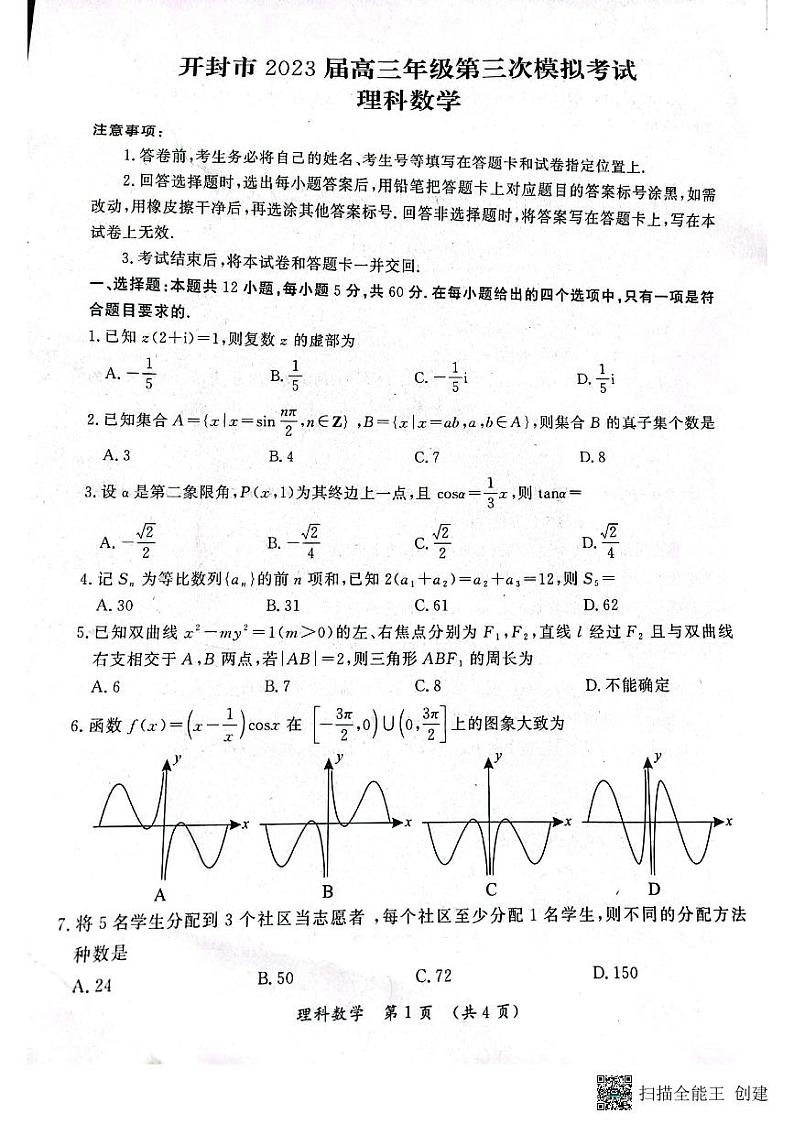 开封市 2023 届高三年级第三次模拟考试
理科数学
注意事项:
1.答卷前,考生务必将自己的姓名、考生号等填写在答题卡和试卷指定位置上.
2.回答选择题时,选出每小题答案后,用铅笔把答题卡上对应题目的答案标号涂黑,如需
改动,用橡皮擦干净后,再选涂其他答案标号.回答非选择题时,将答案写在答题卡上,写在本
试卷上无效.
3.考试结束后,将本试卷和答题卡一并交回.
一、选择题:本题共 12 小题,每小题 5 分,共 60 分.在每小题给出的四个选项中,只有一项是符
合题目要求的.
1.已知 z(2+i)=1,则复数 z 的虚部为
A. -1/5 B. 1/5 C. -1/5 i D. 1/5 i
2.已知集合 A={x|x=sin nπ/2,n∈Z} ,B={x|x=ab,a,b∈A},则集合 B 的真子集个数是
A.3 B.4 C.7 D.8
3.设 α 是第二象限角,P(x,1)为其终边上一点,且 cosα=1/3 x,则 tanα=
A. -√2/2 B. -√2/4 C. √2/2 D. √2/4
4.记 Sₙ 为等比数列{aₙ}的前 n 项和,已知 2(a₁+a₂)=a₂+a₃=12,则 S₅=
A.30 B.31 C.61 D.62
5.已知双曲线 x²-my²=1(m>0)的左、右焦点分别为 F₁,F₂,直线 l 经过 F₂ 且与双曲线
右支相交于 A,B 两点,若|AB|=2,则三角形 ABF₁ 的周长为
A.6 B.7 C.8 D.不能确定
6.函数 f(x)=(x-1/x)cosx 在 [-3π/2,0)∪(0,3π/2]上的图象大致为
y y y y
x x x x
A B C D
7.将 5 名学生分配到 3 个社区当志愿者 ,每个社区至少分配 1 名学生,则不同的分配方法
种数是
A.24 B.50 C.72 D.150
理科数学 第 1 页 (共 4 页)
扫描全能王 创建